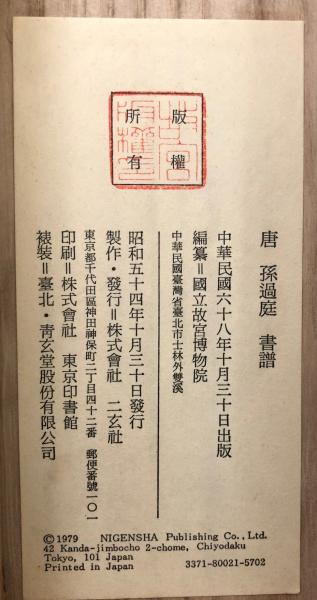 版權
所有
唐 孫過庭 書譜
中華民國六十八年十月三十日出版
編纂＝國立故宮博物院
中華民國臺灣省臺北市士林外雙溪
昭和五十四年十月三十日發行
製作・發行＝株式會社 二玄社
東京都千代田區神田神保町二丁目四十二番 郵便番號一〇一
印刷＝株式會社 東京印書館
裱裝＝臺北・靑玄堂股份有限公司
©1979 NIGENSHA Publishing Co., Ltd.
42 Kanda-jimbocho 2-chome, Chiyodaku
Tokyo, 101 Japan
Printed in Japan 3371-80021-5702